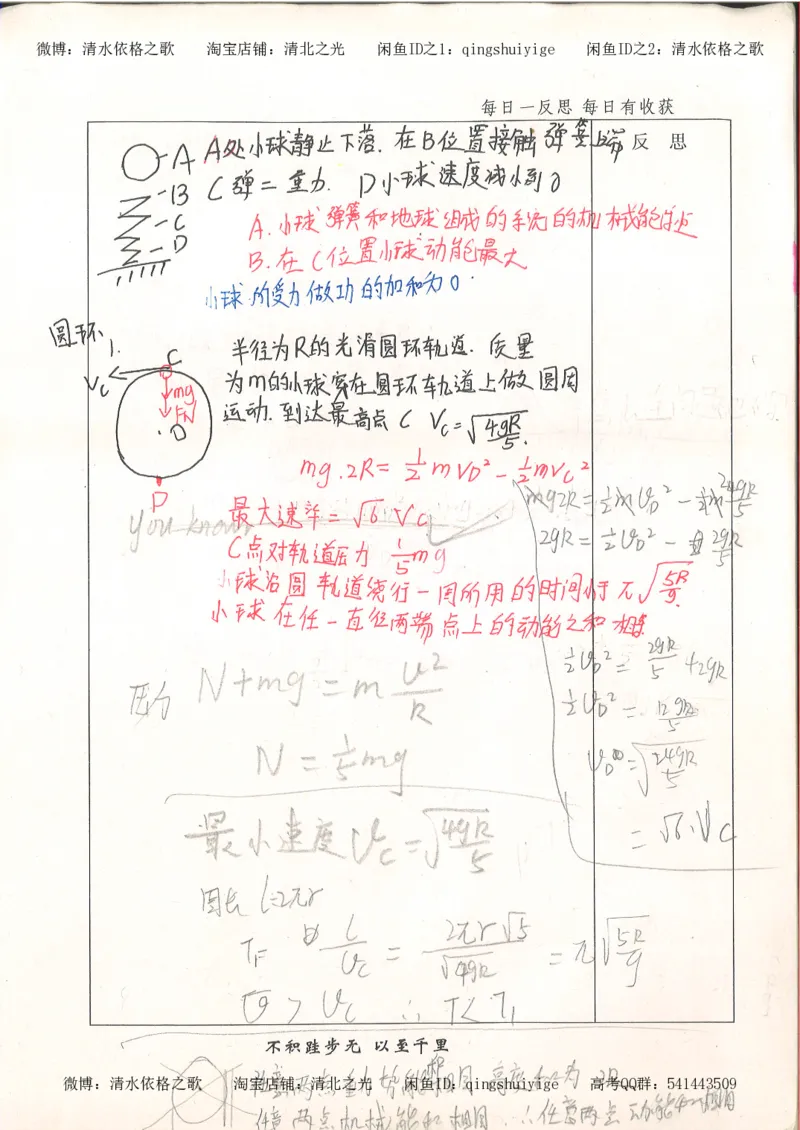 微博：清水依格之歌 淘宝店铺：清北之光 闲鱼ID之1：qingshuiyige 闲鱼ID之2：清水依格之歌
每日一反思 每日有收获
反 思
A
B
C
D
A处小球静止下落.在B位置接触弹簧上端
C弹=重力. D小球速度减小到0
A.小球弹簧和地球组成的系统的机械能守恒
B.在C位置小球动能最大
小球所受力做功的加和为0.
圆环
1.
C
Vc
mg
FN
O
D
半径为R的光滑圆环轨道.质量
为m的小球穿在圆环轨道上做圆周
运动.到达最高点C Vc=√4gR/5.
mg.2R=1/2mVD²-1/2mVc²
you know
最大速率=√6Vc
C点对轨道压力 1/5mg
小球沿圆轨道绕行一周所用的时间小于π√5R/g.
小球在任一直径两端点上的动能之和相等
mg2R=1/2mVD²-1/2m 4gR/5
2gR=1/2VD²- 2gR/5
1/2VD²=2gR/5+2gR
1/2VD²=12gR/5
VD=√24gR/5
=√6.Vc
压力 N+mg=m v²/R
N=1/5mg
最小速度Vc=√4gR/5
周长 l=2πr
l/Vc=2πr√5/√4gR=π√5R/g
> Vc ∴T<T1
不积跬步无 以至千里
微博：清水依格之歌 淘宝店铺：清北之光 闲鱼ID：qingshuiyige 高考QQ群：541443509
任意两点机械能和相同 ∴任意两点动能和相同